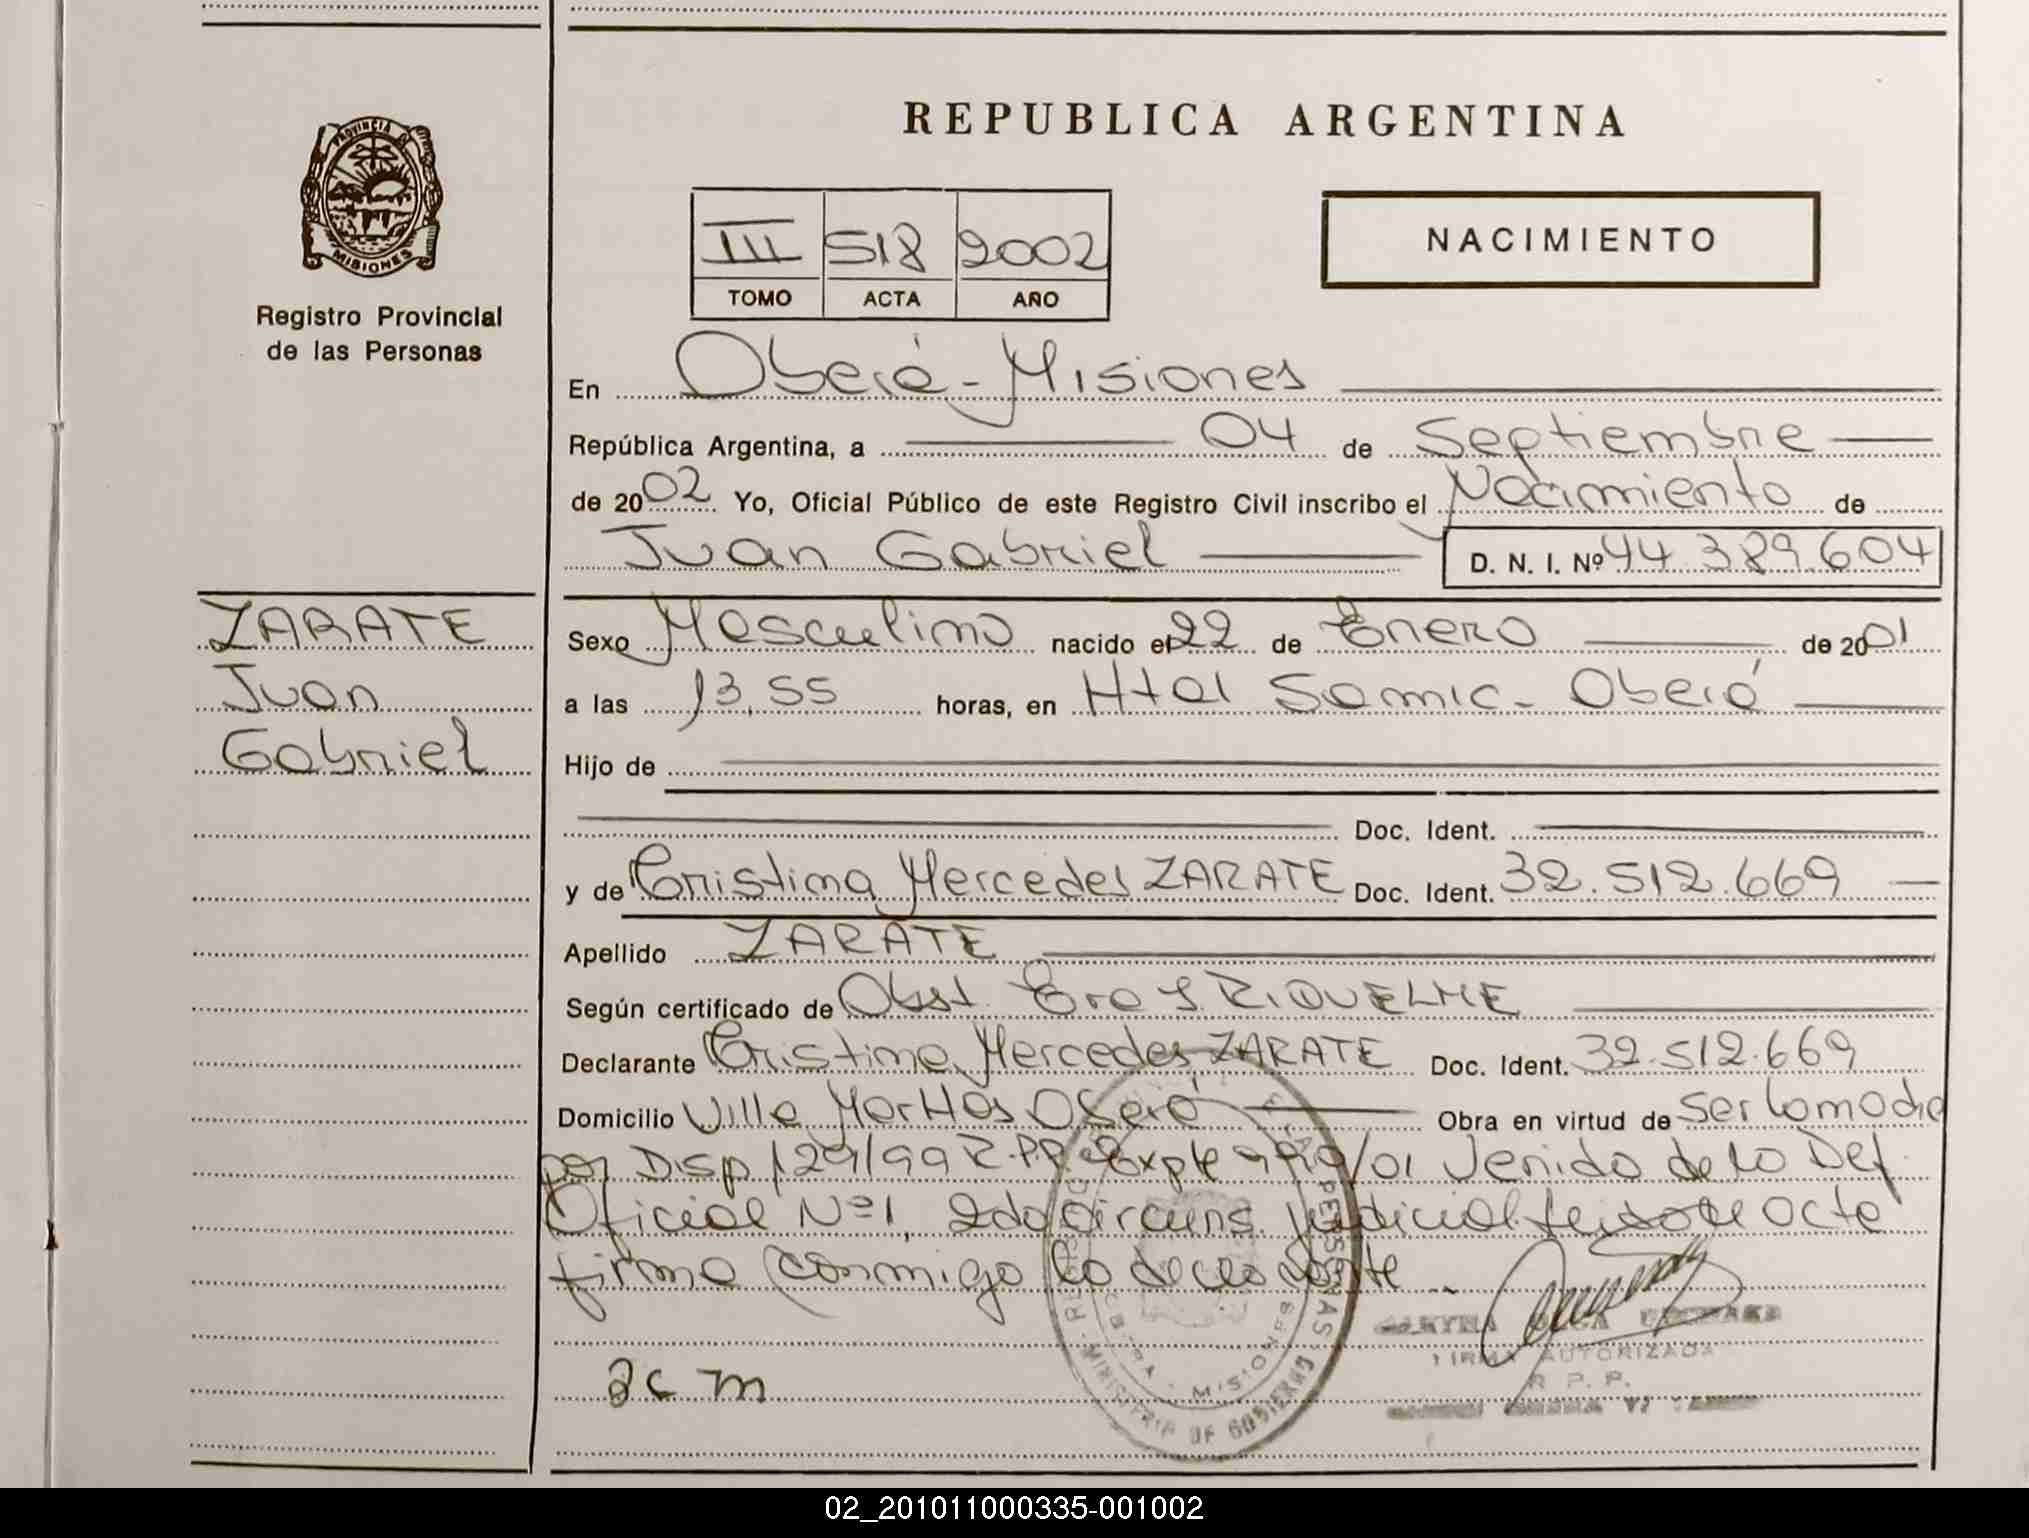 REPUBLICA ARGENTINA
PROVINCIA DE
MISIONES
Registro Provincial
de las Personas
III 518 2002
TOMO ACTA AÑO
NACIMIENTO
En Oberá - Misiones
República Argentina, a 04 de Septiembre
de 2002 Yo, Oficial Público de este Registro Civil inscribo el Nacimiento de
Juan Gabriel D. N. I. Nº 44.389.604
ZARATE
Juan
Gabriel
Sexo Masculino nacido el 22 de Enero de 2001
a las 13,55 horas, en Htal Samic - Oberá
Hijo de
Doc. Ident.
y de Cristina Mercedes ZARATE Doc. Ident. 32.512.669
Apellido ZARATE
Según certificado de Obst. RIQUELME
Declarante Cristina Mercedes ZARATE Doc. Ident. 32.512.669
Domicilio Villa Oberá Obra en virtud de
por Disp 129/99 R.P.P. Expte /01 venido de la Def.
Oficial Nº 1, 2da circuns. judicial. acta
firma conmigo la declarante
MINISTERIO DE GOBIERNO
MISIONES
FIRMA AUTORIZADA
R. P. P.
02_201011000335-001002